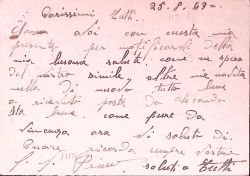 25-8-42-
Carissimi Tutti.
sono a voi con questa mia
presente per notificarvi della
mia buona salute come ne spero
del vostro simile, altre mie novità
nulla di nuovo tutto bene
o ricevuto posta da
sta bene come pure da
Vincenza ora vi saluto di
Cuore ricorda sempre vostro
saluti a Tutti